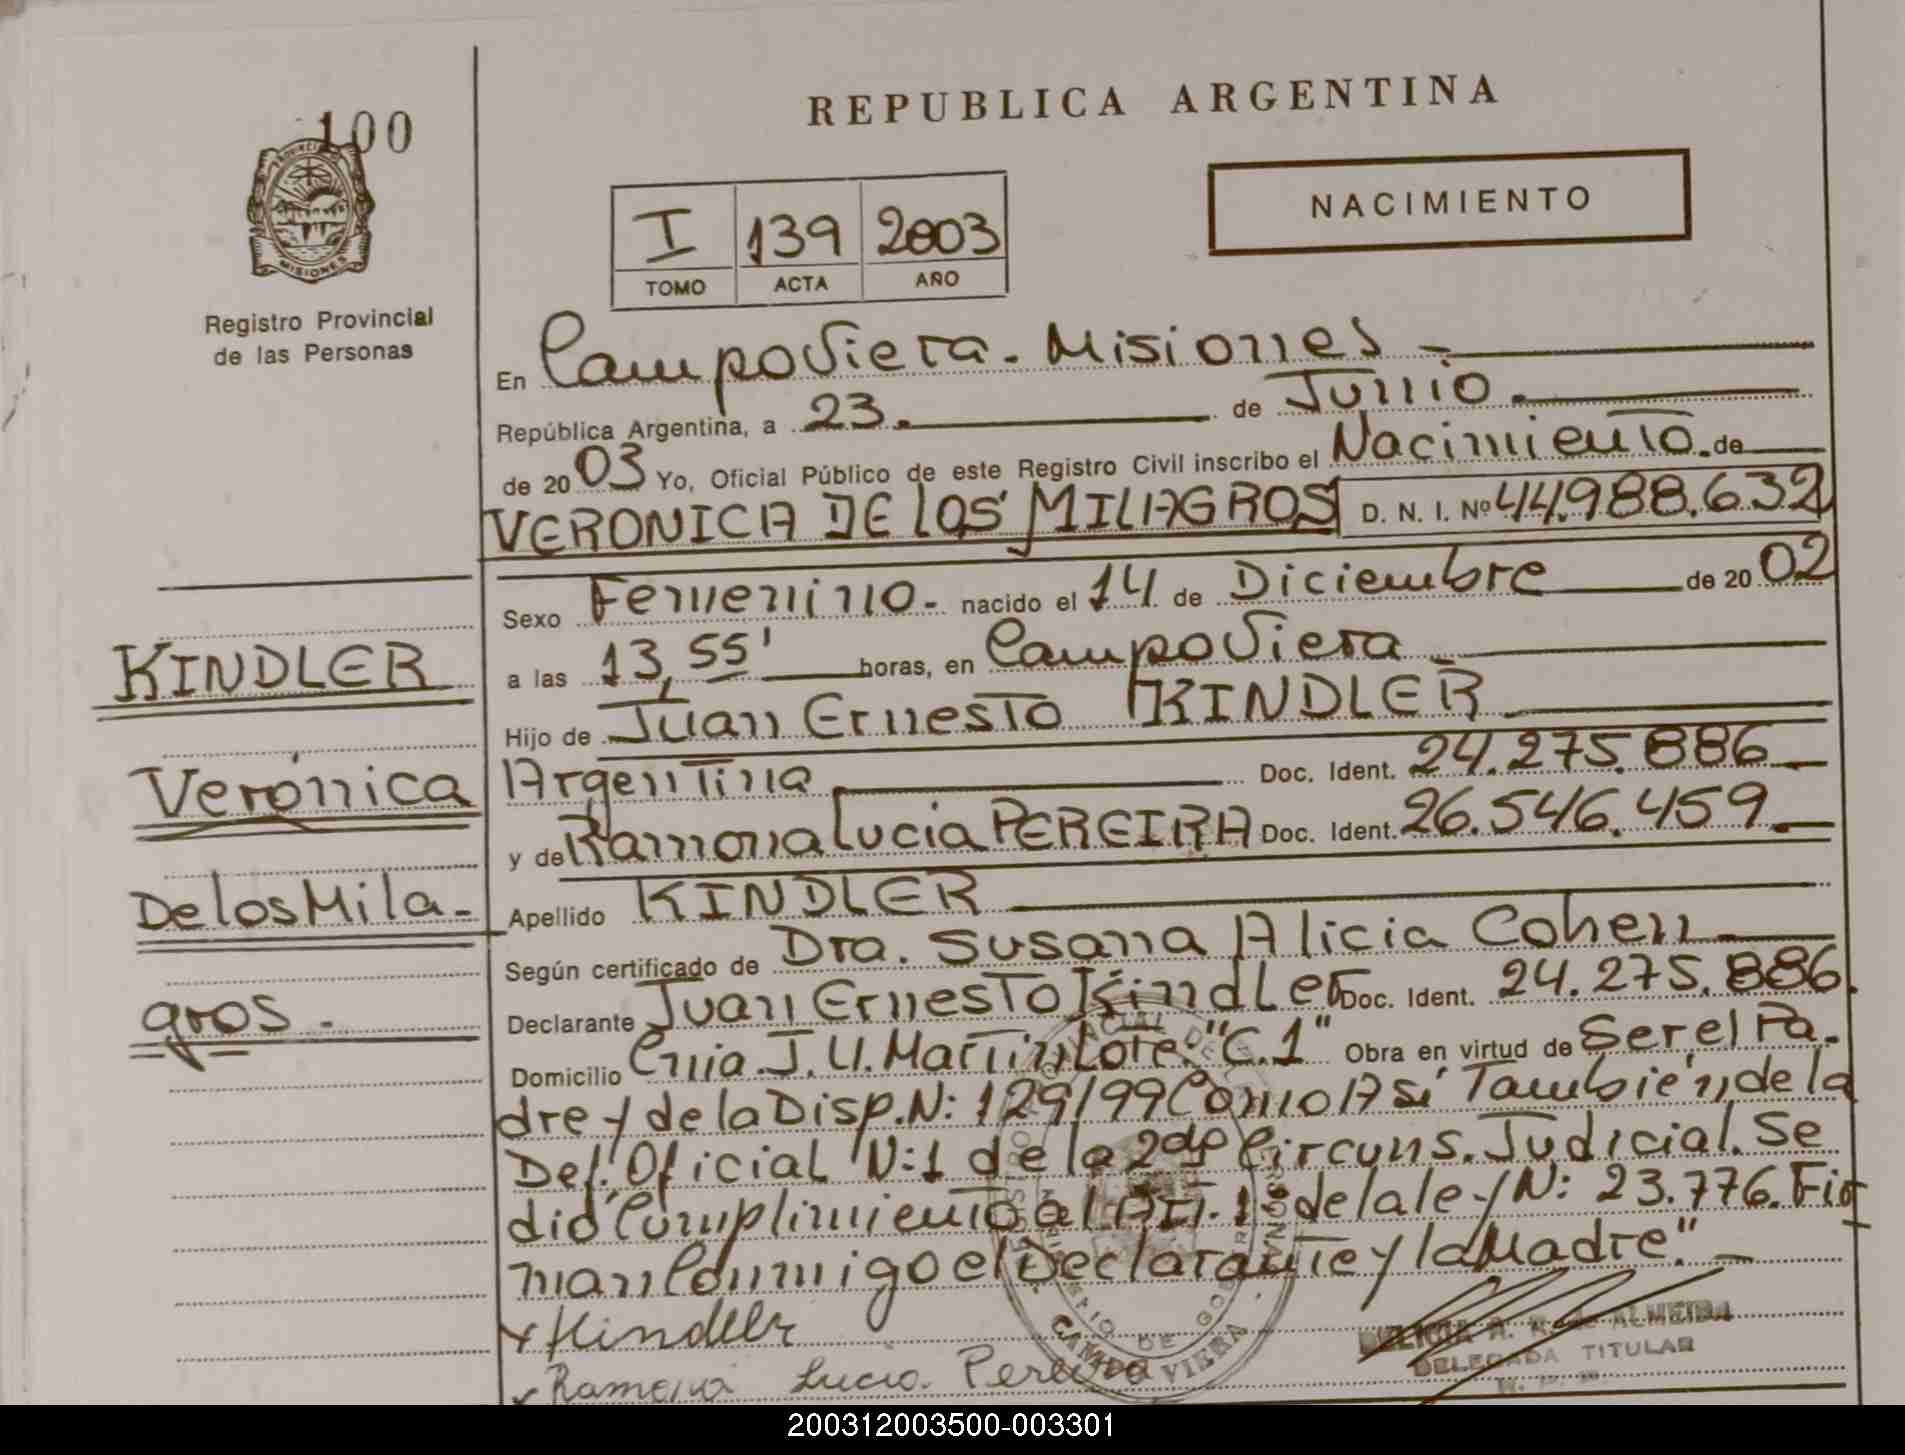 REPUBLICA ARGENTINA
100
PROVINCIA
MISIONES
Registro Provincial
de las Personas
NACIMIENTO
I 139 2003
TOMO ACTA AÑO
En Campo Viera - Misiones -
República Argentina, a 23. de Junio.
de 2003 Yo, Oficial Público de este Registro Civil inscribo el Nacimiento. de
VERONICA DE LOS MILAGROS D. N. I. Nº 44.988.632
Sexo Femenino - nacido el 14 de Diciembre de 2002
a las 13,55' horas, en Campo Viera
Hijo de Juan Ernesto KINDLER
Argentina Doc. Ident. 24.275.886
y de Ramona Lucia PEREIRA Doc. Ident. 26.546.459
Apellido KINDLER
Según certificado de Dra. Susana Alicia Cohen
Declarante Juan Ernesto Kindler Doc. Ident. 24.275.886.
Domicilio Cnia. J. U. Martin Lote "C.1" Obra en virtud de Ser el Pa-
dre y de la Disp. N: 129/99 Como Así También, de la
Def. Oficial N:1 de la 2da Circuns. Judicial. Se
dió Cumplimiento al Art. 1º de la ley N: 23.776. Fir
man Conmigo el Declarante y la Madre." -
KINDLER
Verónica
De los Mila-
gros.-
x Kindler
x Ramona Lucia Pereira
CAMPO VIERA
ALMEIDA
DELEGADA TITULAR
200312003500-003301